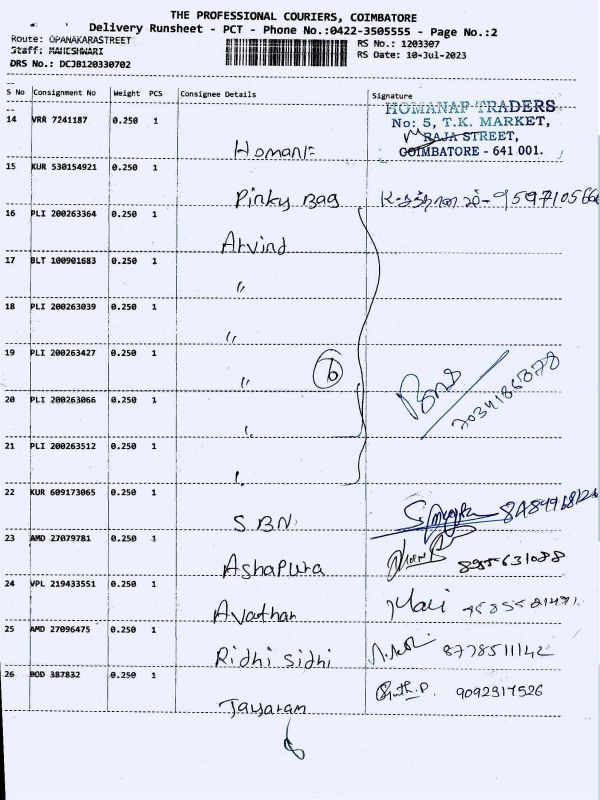 THE PROFESSIONAL COURIERS, COIMBATORE
Delivery Runsheet - PCT - Phone No.:0422-3505555 - Page No.:2
Route: OPANAKARASTREET
RS No.: 1203307
Staff: MAHESHWARI
RS Date: 10-Jul-2023
DRS No.: DCJB120330702
S No Consignment No Weight PCS Consignee Details Signature
HOMANAF TRADERS
No: 5, T.K. MARKET,
RAJA STREET,
COIMBATORE - 641 001.
14 VRR 7241187 0.250 1
Homanf
15 KUR 530154921 0.250 1
Pinky Bag
16 PLI 200263364 0.250 1
Arvind
17 BLT 100901683 0.250 1
"
18 PLI 200263039 0.250 1
"
19 PLI 200263427 0.250 1
" 6
20 PLI 200263066 0.250 1
21 PLI 200263512 0.250 1
22 KUR 609173065 0.250 1
S.BN
23 AMD 27079781 0.250 1
Ashapura
24 VPL 219433551 0.250 1
Avathar
Mari
25 AMD 27096475 0.250 1
Ridhi sidhi 8778511142
26 BOD 387832 0.250 1
9092317526
Jayaram